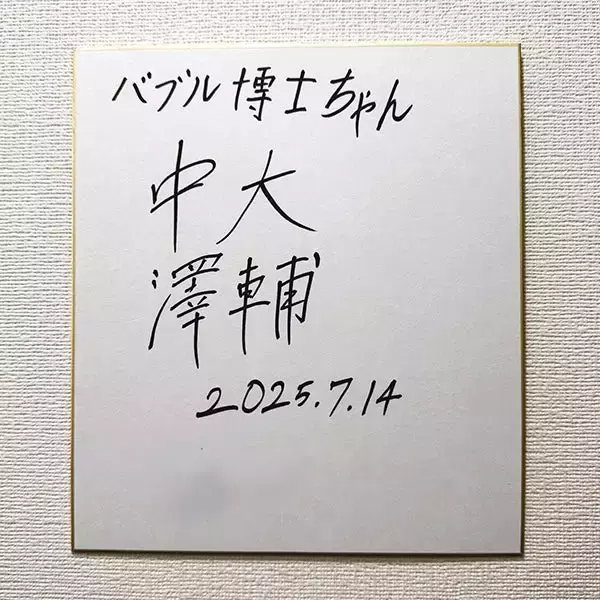 バブル博士ちゃん
中大
澤輔
2025.7.14